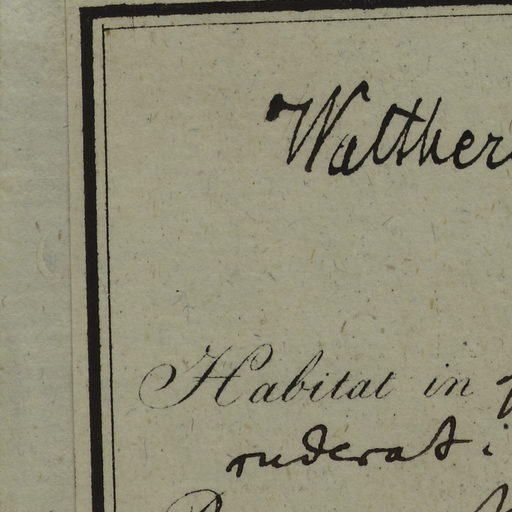 Walther
Habitat in
ruderat i